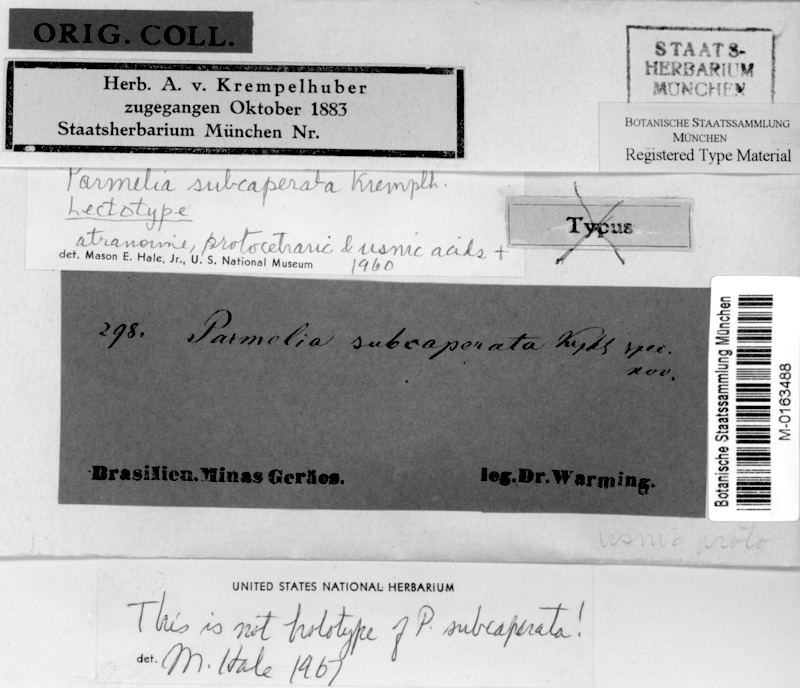 ORIG. COLL.
Herb. A. v. Krempelhuber
zugegangen Oktober 1883
Staatsherbarium München Nr.
STAATS-
HERBARIUM
MÜNCHEN
BOTANISCHE STAATSSAMMLUNG
MÜNCHEN
Registered Type Material
Parmelia subcaperata Kremplh.
Lectotype
atranorine, protocetraric & usnic acids +
det. Mason E. Hale, Jr., U. S. National Museum 1960
Typus
298. Parmelia subcaperata Krphbr spec.
nov.
Brasilien. Minas Geräes. leg. Dr. Warming.
Botanische Staatssammlung München
M-0163488
usnic proto
UNITED STATES NATIONAL HERBARIUM
This is not holotype of P. subcaperata!
det. M. Hale 1967